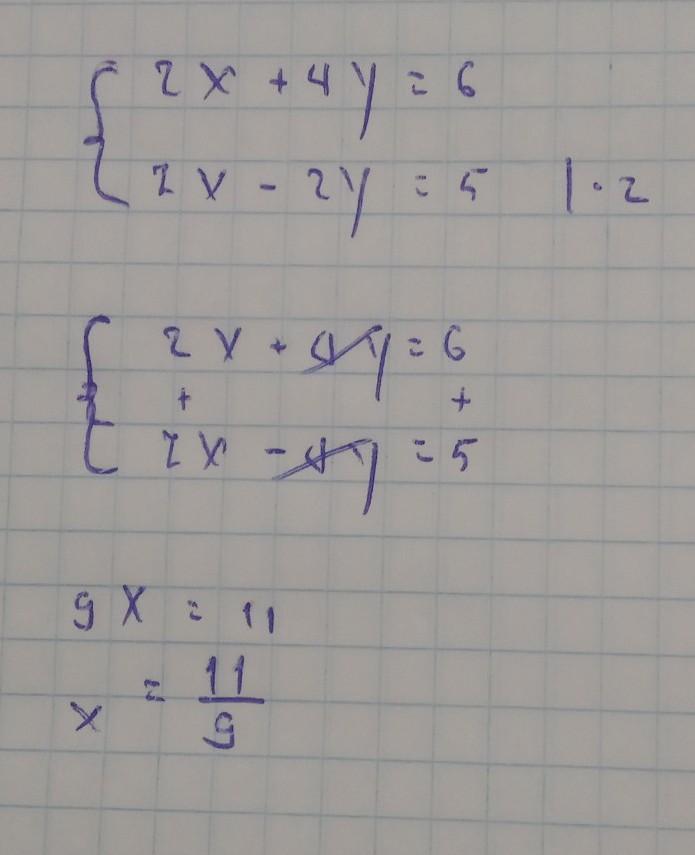 2x + 4y = 6
2x - 2y = 5 | · 2
2x + 4y = 6
+ +
2x - 4y = 5
9x = 11
x = 11/9